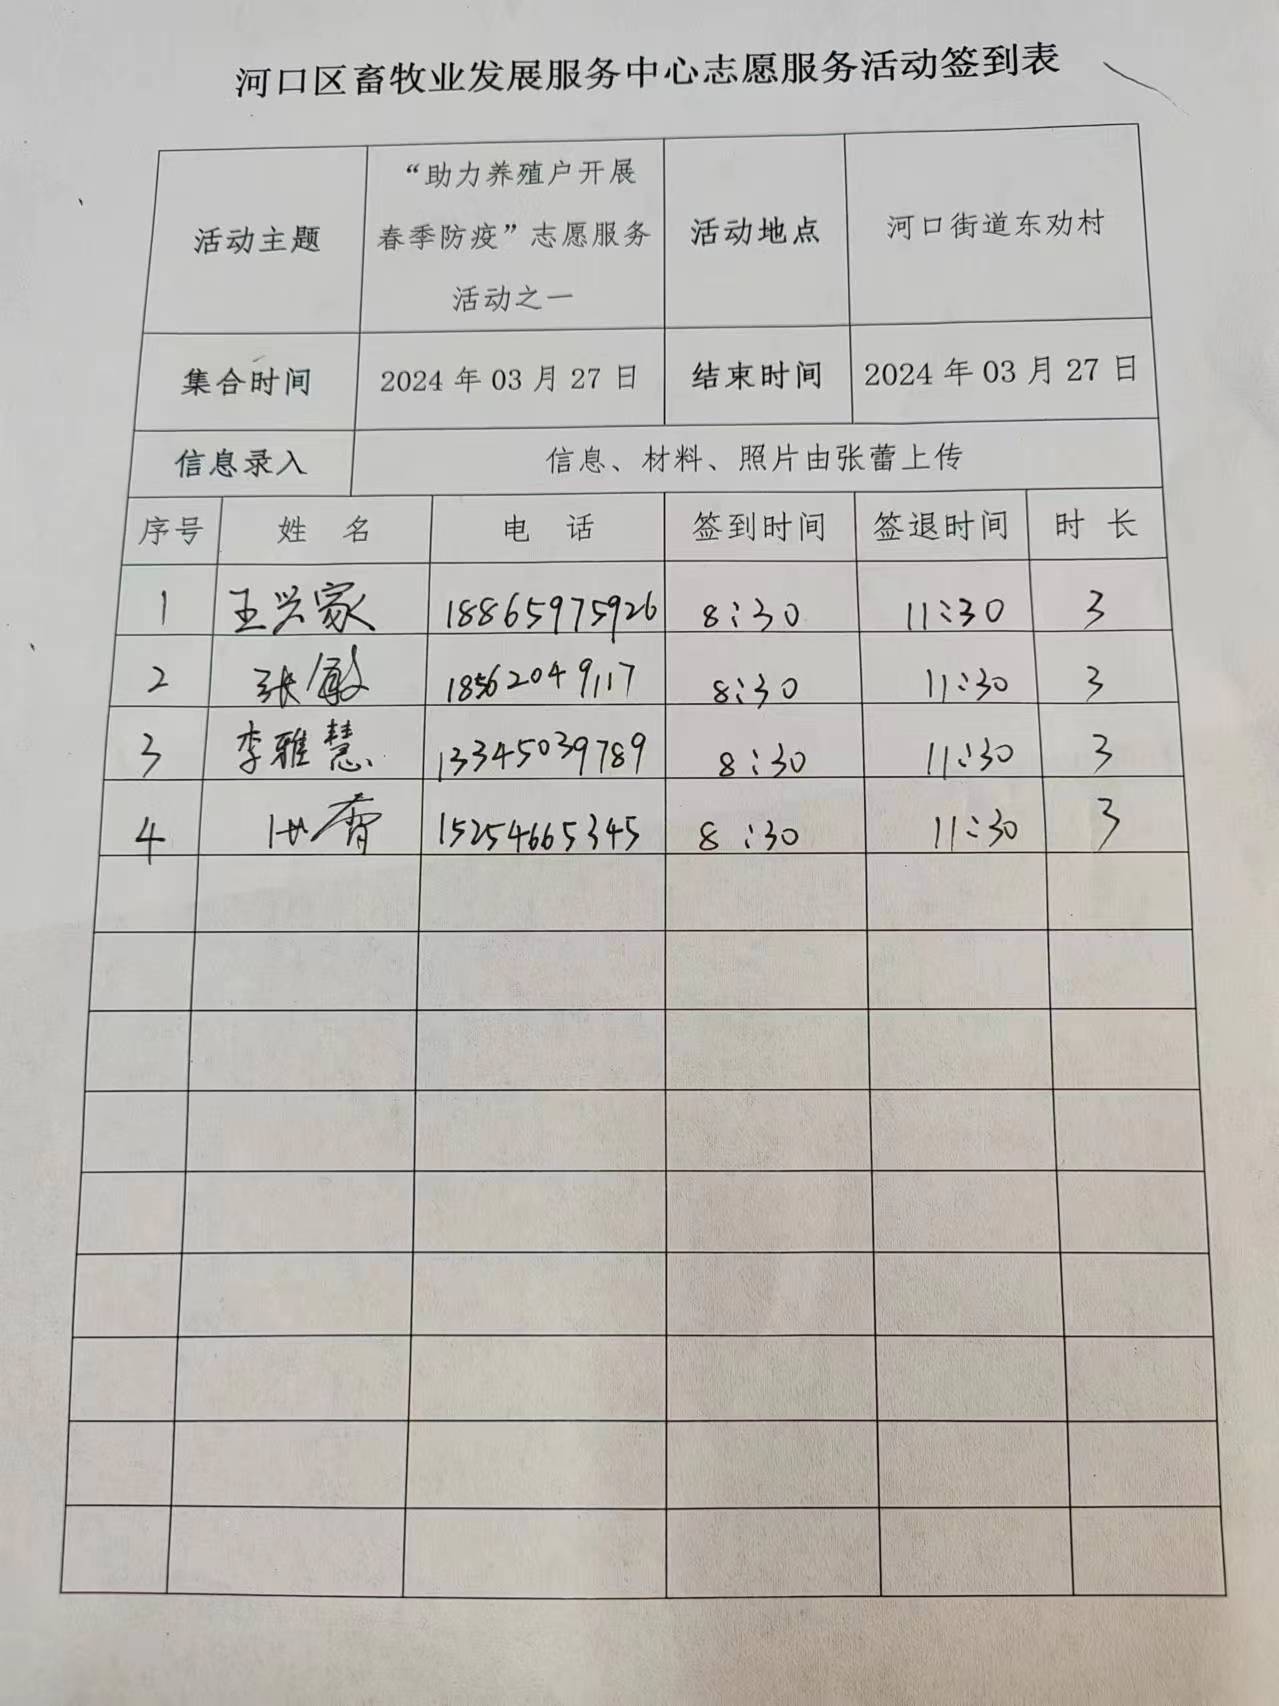 河口区畜牧业发展服务中心志愿服务活动签到表
活动主题 “助力养殖户开展春季防疫”志愿服务活动之一 活动地点 河口街道东劝村
集合时间 2024年03月27日 结束时间 2024年03月27日
信息录入 信息、材料、照片由张蕾上传
序号 姓 名 电 话 签到时间 签退时间 时 长
1 王兴家 18865975926 8:30 11:30 3
2 张敏 18562049117 8:30 11:30 3
3 李雅慧 13345039789 8:30 11:30 3
4 15254665345 8:30 11:30 3